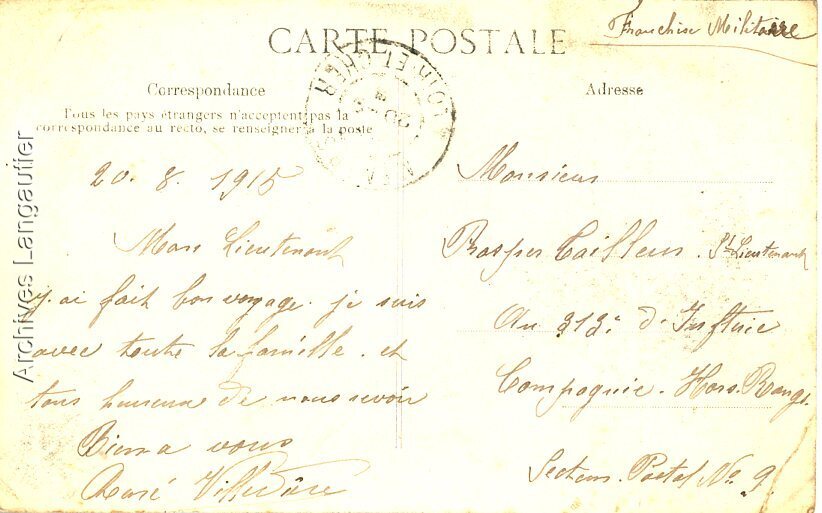 Franchise Militaire
CARTE POSTALE
Correspondance
Tous les pays étrangers n'acceptent pas la
correspondance au recto, se renseigner à la poste
20. 8. 1915
Mon Lieutenant
J'ai fait bon voyage. je suis
avec toute la famille. et
tous heureux de nous revoir
Bien a vous
Villedieu
Adresse
Monsieur
Tailleur. St Lieutenant
Au 313e d'Inftrie
Compagnie. Hors. Rang.
Secteur. Postal No 9.
LOIR ET CHER
Archives Langautier